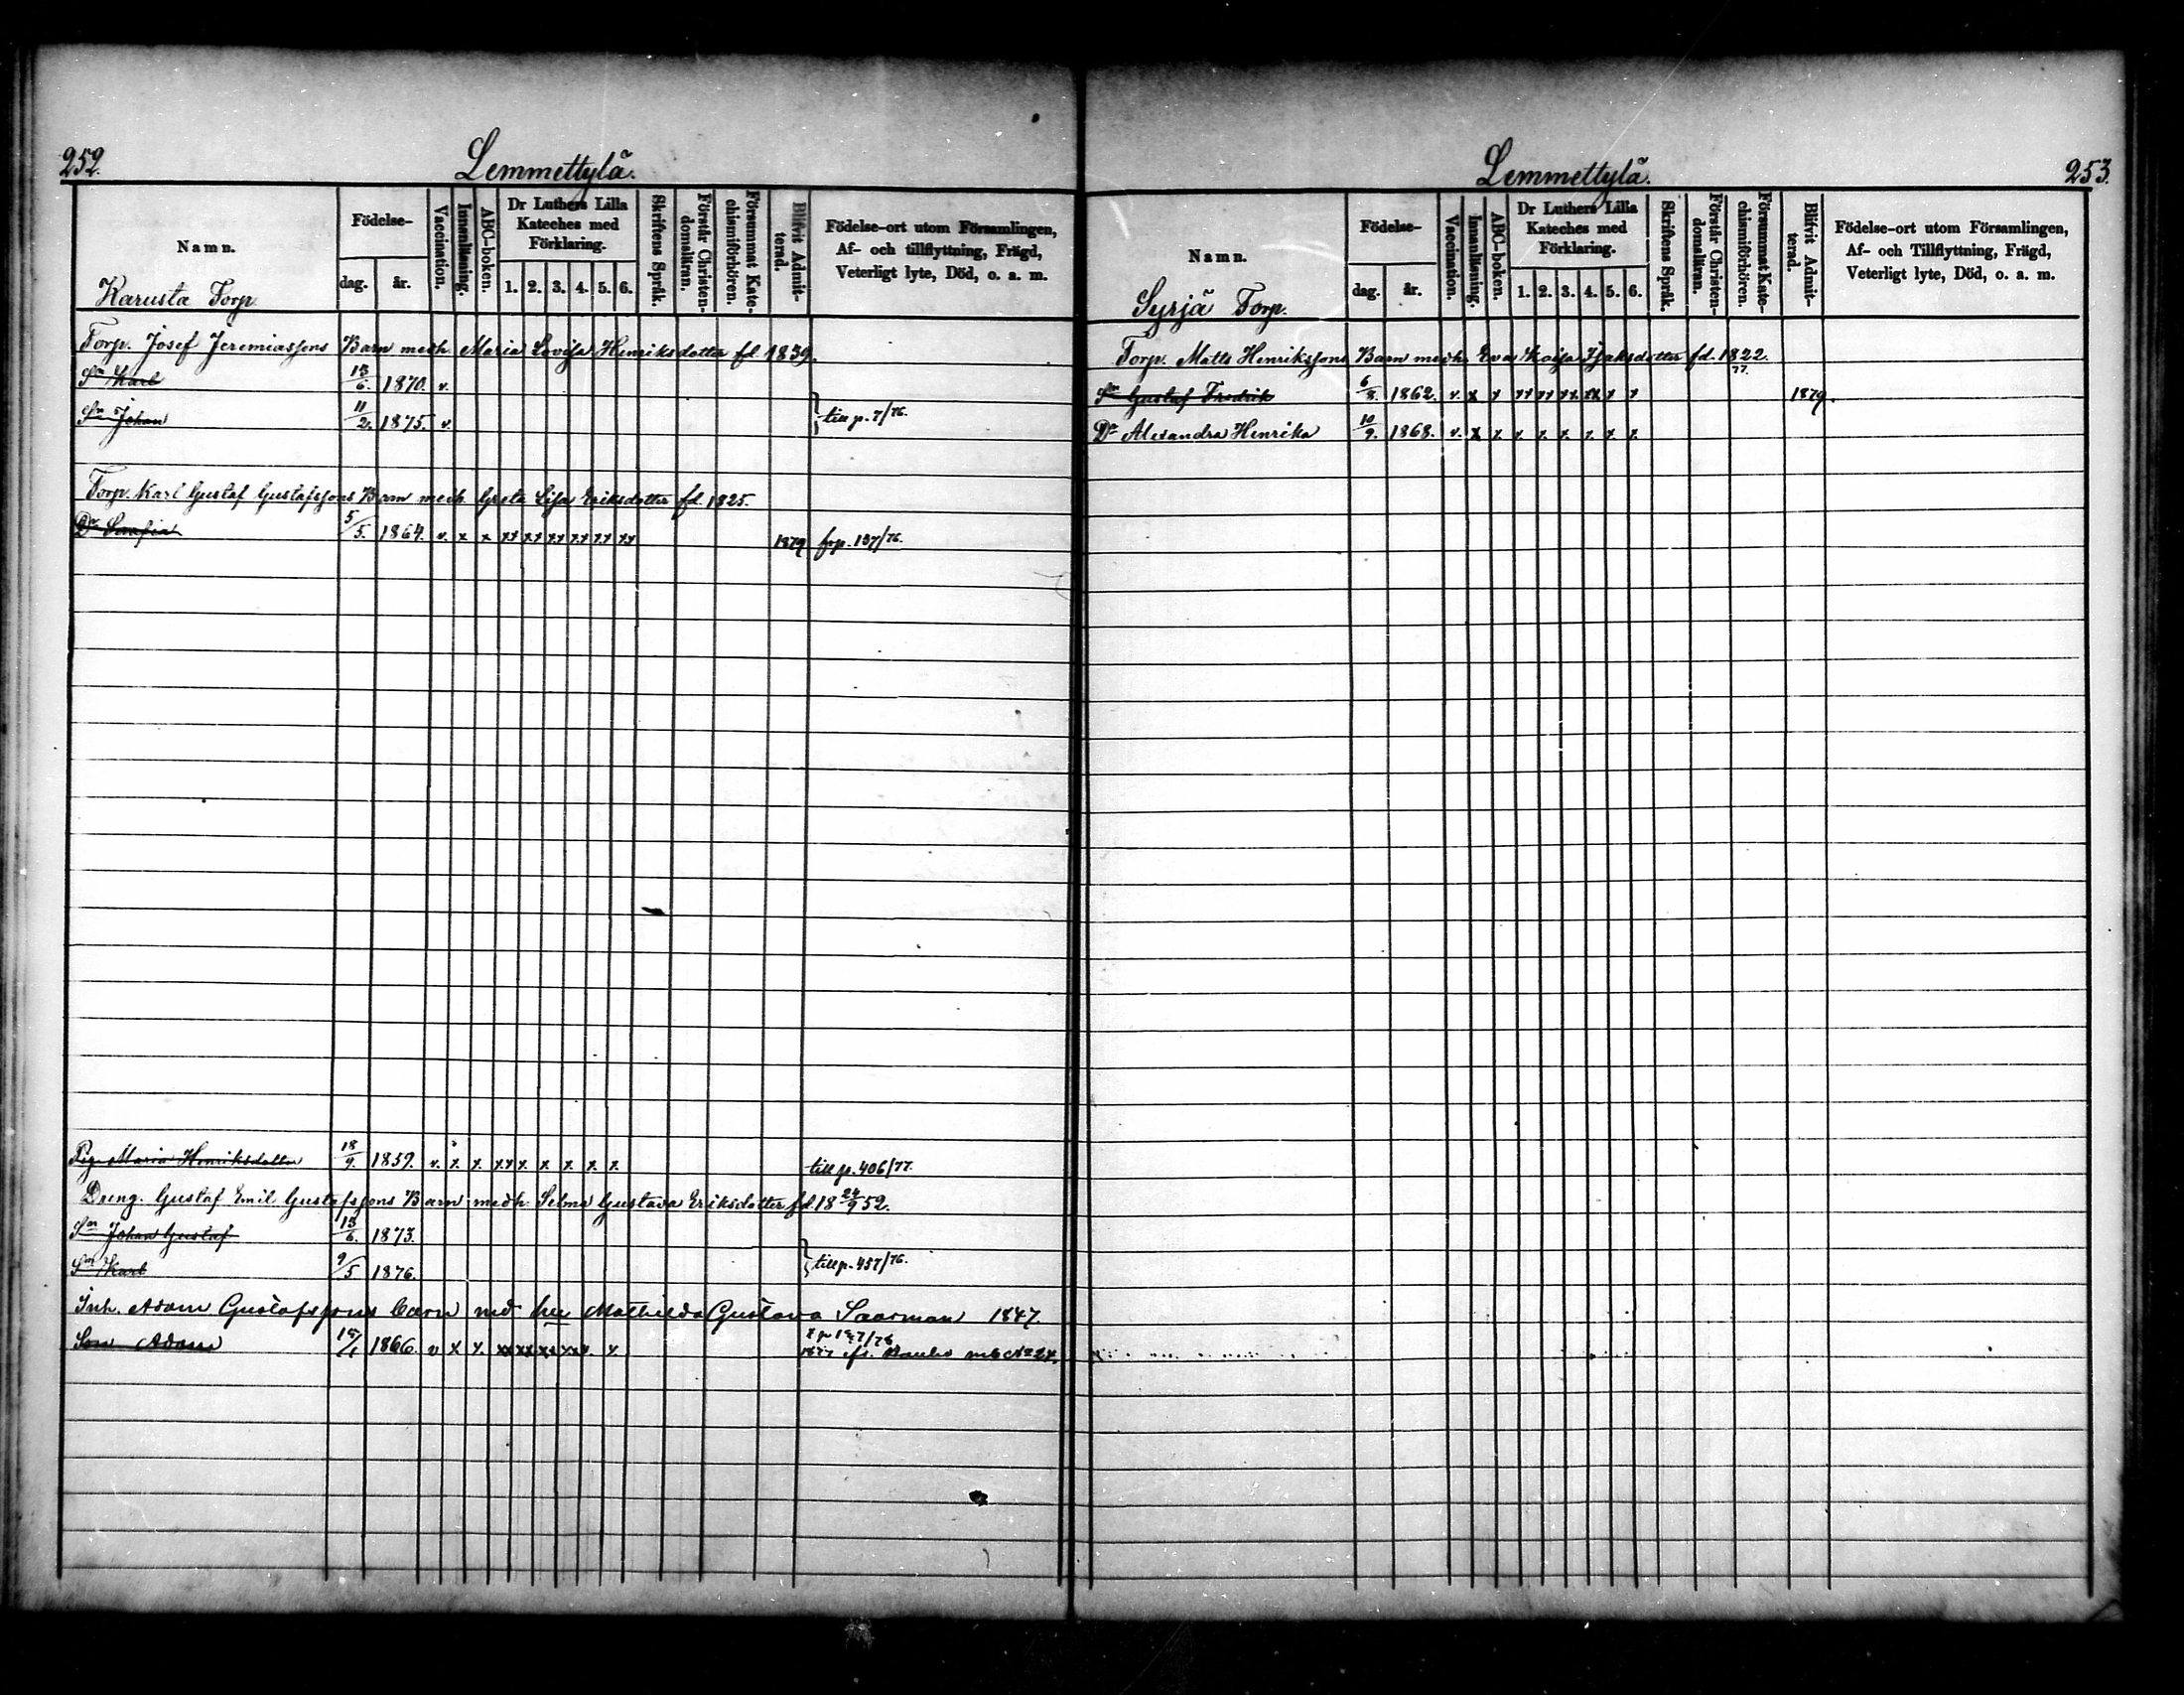 252.
Lemmettylä.
Namn.
Födelse-
dag. år.
Vaccination.
Innanläsning.
ABC-boken.
Dr Luthers Lilla Kateches med Förklaring.
1. 2. 3. 4. 5. 6.
Skriftens Språk.
Förstår Christendomsläran.
Försummat Katechismiförhören.
Blifvit Admitterad.
Födelse-ort utom Församlingen, Af- och tillflyttning, Frägd, Veterligt lyte, Död, o. a. m.
Karusta Torp
Torp. Josef Jeremiassons Barn med h. Maria Lovisa Henriksdotter fd. 1839.
Sn Karl 13/6. 1870. v.
Sn Johan 11/2. 1875. v. till p. 7/76.
Torp. Karl Gustaf Gustafssons Barn med h. Greta Lisa Eriksdotter fd. 1825.
Dr Serafia 5/5. 1864. v. x x xx xx xx xx xx xx 1879 frp. 137/76.
Pig. Maria Henriksdotter 18/9. 1859. v. x. x. xx x. x x. x. x. till p. 406/77.
Dreng. Gustaf Emil Gustafssons Barn med h. Selma Gustava Eriksdotter fd. 18 24/9 52.
Sn Johan Gustaf 13/6. 1873.
Sn Karl 9/5 1876. till p. 457/76.
Inh. Adam Gustafssons barn med hu Mathilda Gustava Saarman 1847.
Son Adam 1866. v x x.
253.
Lemmettylä.
Namn.
Födelse-
dag. år.
Vaccination.
Innanläsning.
ABC-boken.
Dr Luthers Lilla Kateches med Förklaring.
1. 2. 3. 4. 5. 6.
Skriftens Språk.
Förstår Christendomsläran.
Försummat Katechismiförhören.
Blifvit Admitterad.
Födelse-ort utom Församlingen, Af- och Tillflyttning, Frägd, Veterligt lyte, Död, o. a. m.
Syrjä Torp.
Torp. Matts Henrikssons Barn med h. Eva Kaisa Isaksdotter fd. 1822.
77.
Sn Gustaf Fredrik 6/8. 1862. v. x x xx xx xx xx x x 1879.
Dr Alexandra Henrika 10/9. 1868. v. x x. x. x. x. x. x. x.